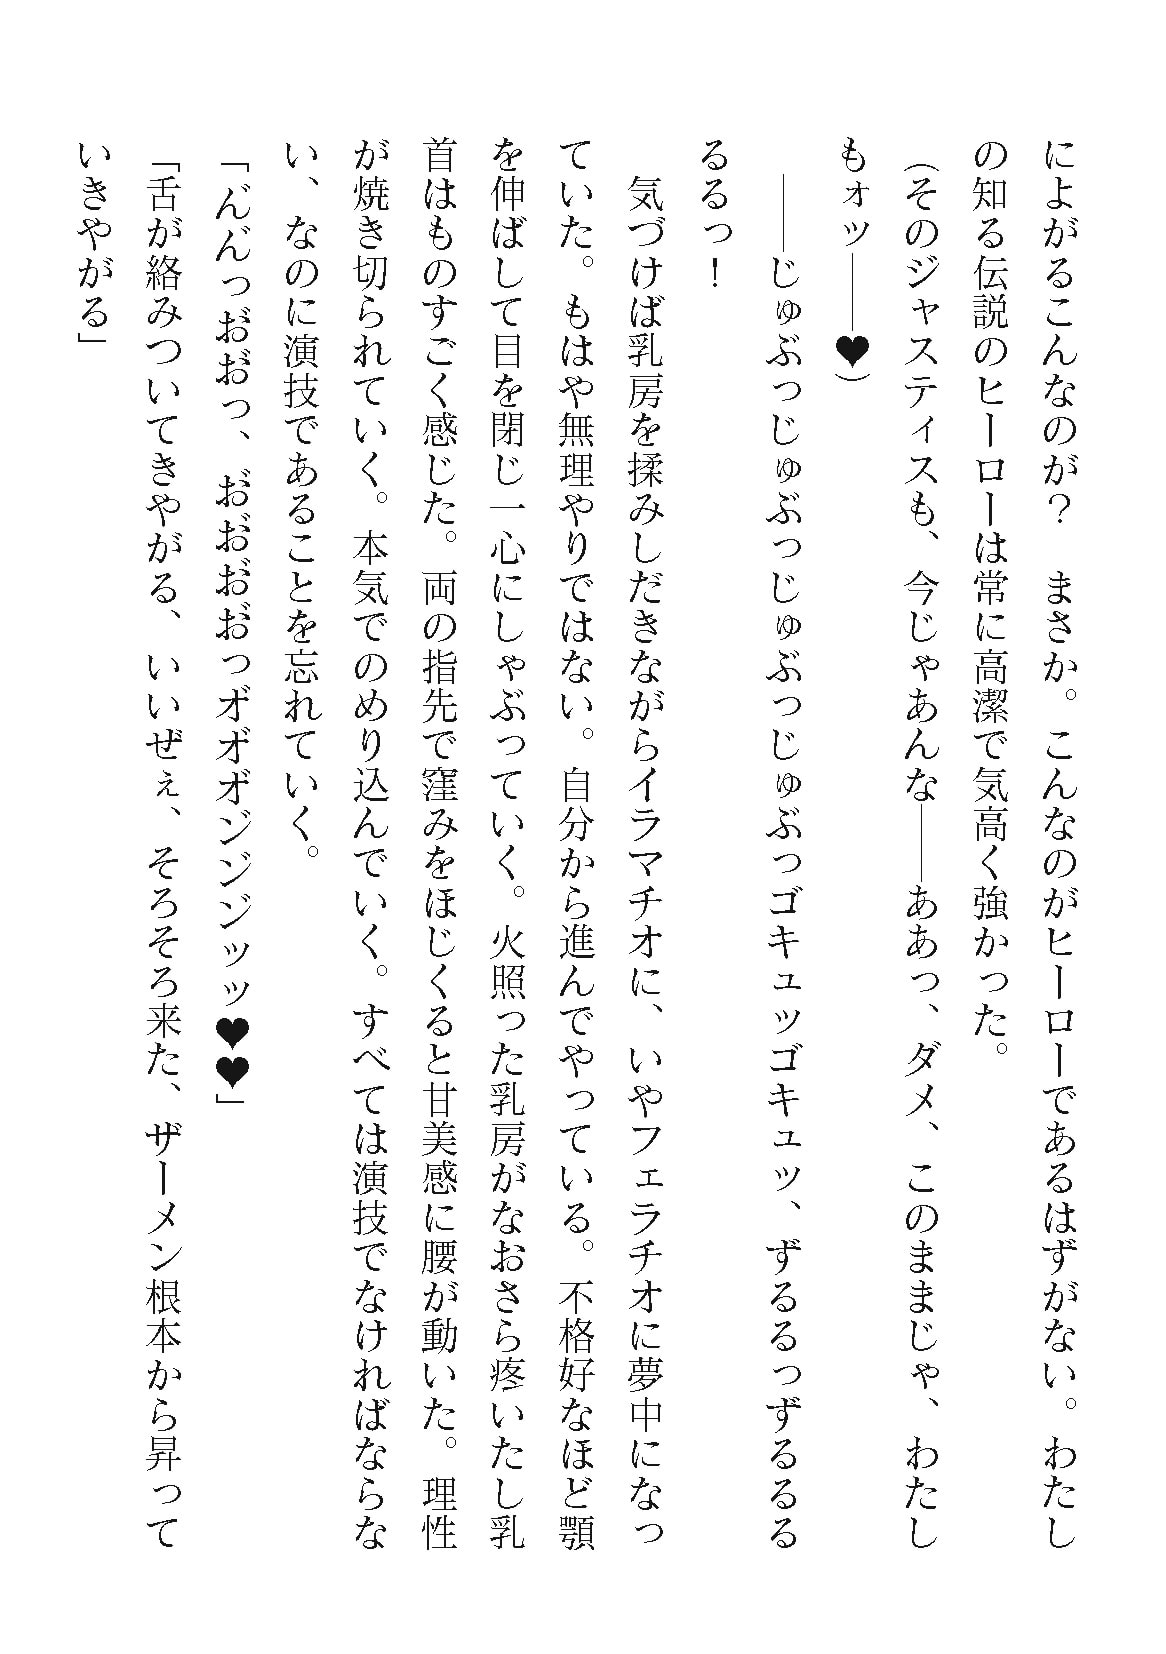 によがるこんなのが？　まさか。こんなのがヒーローであるはずがない。わたし
の知る伝説のヒーローは常に高潔で気高く強かった。
（そのジャスティスも、今じゃあんな――ああっ、ダメ、このままじゃ、わたし
もォッ――♥）
　――じゅぶっじゅぶっじゅぶっじゅぶっゴキュッゴキュッ、ずるるっずるるる
るるっ！
　気づけば乳房を揉みしだきながらイラマチオに、いやフェラチオに夢中になっ
ていた。もはや無理やりではない。自分から進んでやっている。不格好なほど顎
を伸ばして目を閉じ一心にしゃぶっていく。火照った乳房がなおさら疼いたし乳
首はものすごく感じた。両の指先で窪みをほじくると甘美感に腰が動いた。理性
が焼き切られていく。本気でのめり込んでいく。すべては演技でなければならな
い、なのに演技であることを忘れていく。
「ん゛ん゛っお゛お゛っ、お゛お゛お゛お゛っオ゛オ゛オ゛ン゛ン゛ン゛ッッ♥♥」
「舌が絡みついてきやがる、いいぜぇ、そろそろ来た、ザーメン根本から昇って
いきやがる」